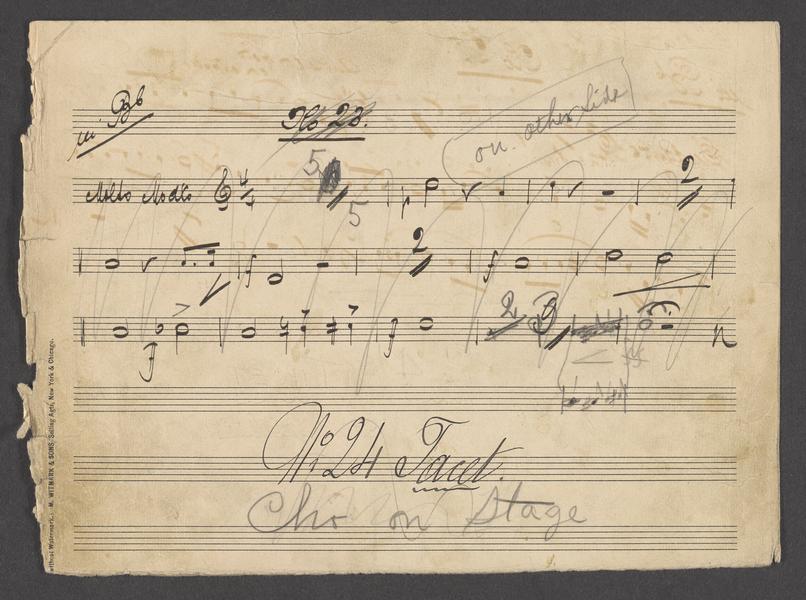 in Bb
No 23.
on other side
5
Molto Modto
2
5
f
2
f
f
f
2
3
No 24 Tacet.
Cho on Stage
without Watermark.: M. WITMARK & SONS, Selling Agts, New York & Chicago.